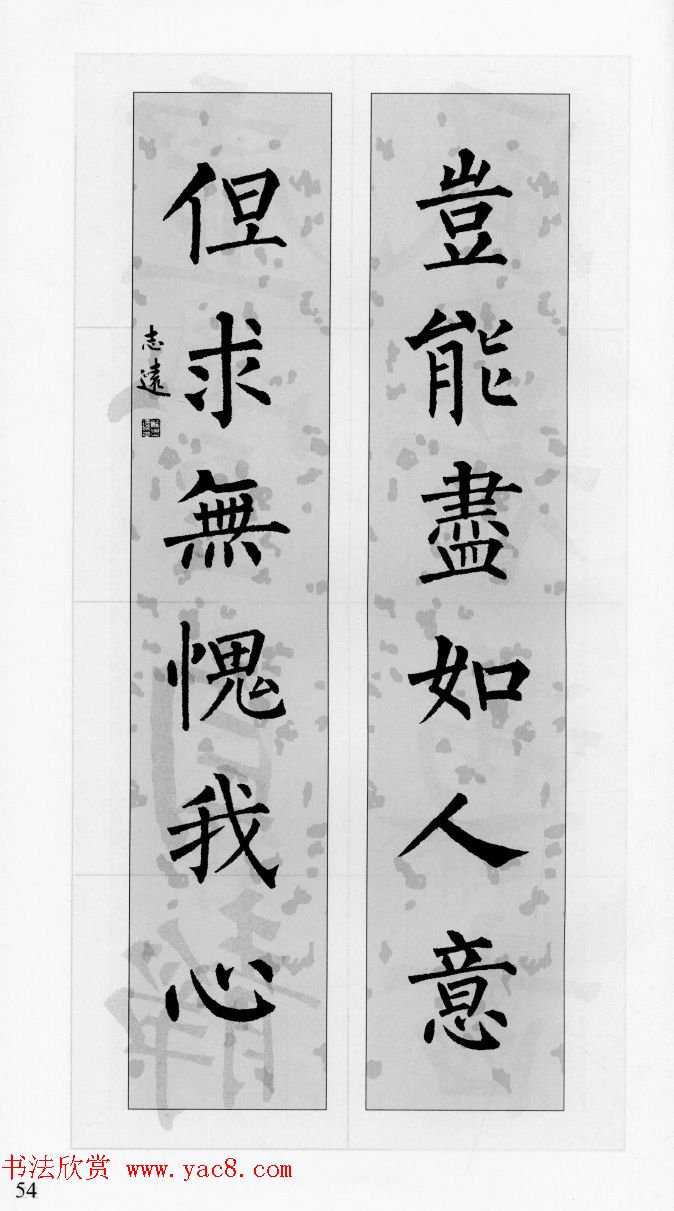 豈能盡如人意
但求無愧我心
志遠
书法欣赏 www.yac8.com
54